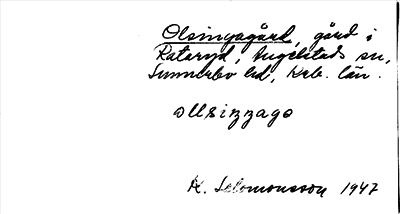 Olsingagård, gård i
Rataryd, Angelstads sn,
Sunnerbo hd, Krb. län.
ollsizzago
K. Salomonsson 1947